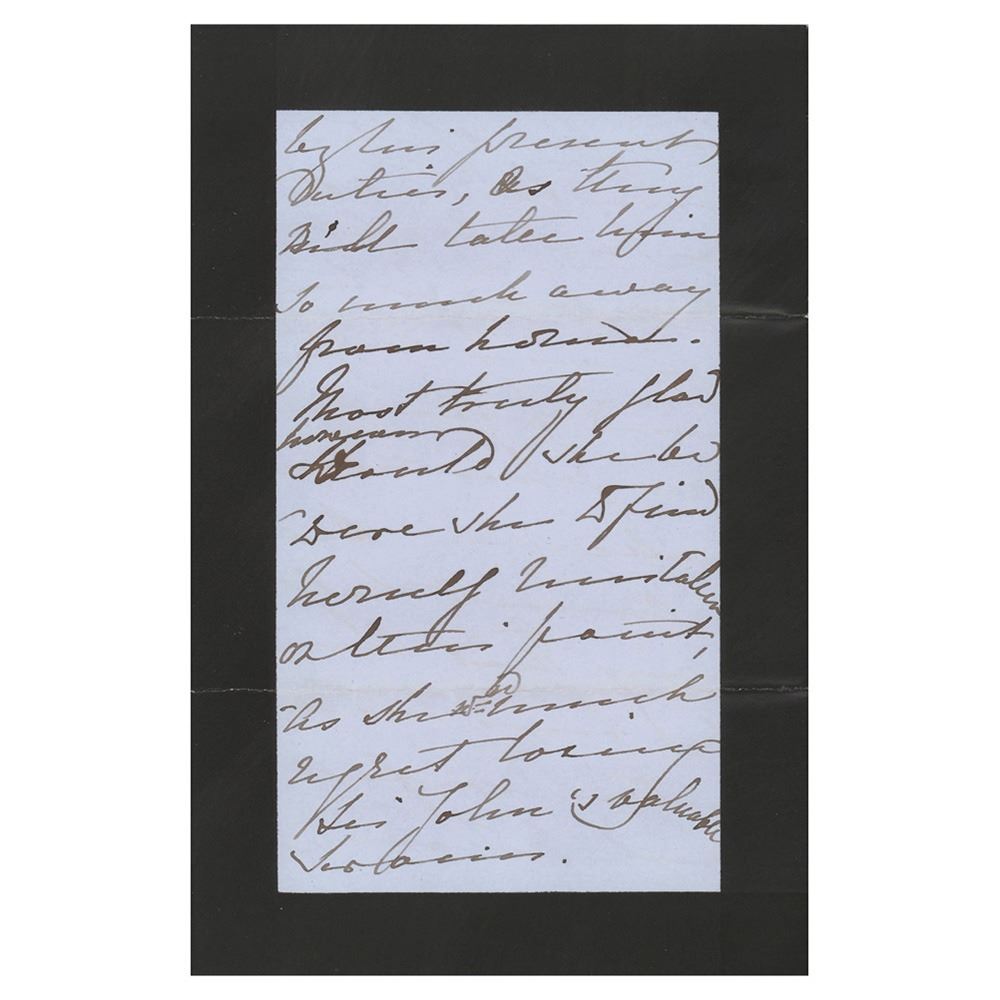 by his present
Duties, as they
still take him
so much away
from home.
Most truly glad
however
should she be
were she to find
herself mistaken
on this point,
as she wd much
regret losing
Sir John's valuable
Services.